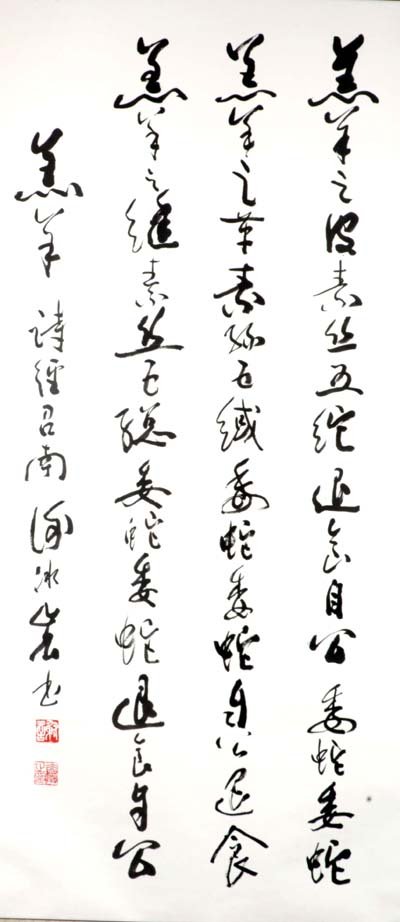 羔羊之皮素丝五紽退食自公委蛇委蛇
羔羊之革素絲五緎委蛇委蛇自公退食
羔羊之縫素丝五總委蛇委蛇退食自公
羔羊 詩經召南 冰岩书